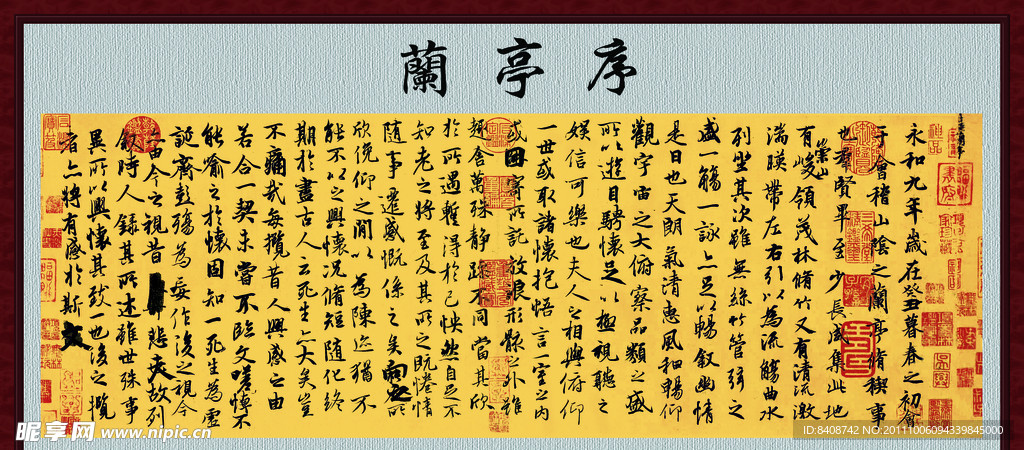 蘭亭序
永和九年歲在癸丑暮春之初會
于會稽山陰之蘭亭脩禊事
也羣賢畢至少長咸集此地
有崇山峻領茂林脩竹又有清流激
湍暎帶左右引以為流觴曲水
列坐其次雖無絲竹管弦之
盛一觴一詠亦足以暢敘幽情
是日也天朗氣清惠風和暢仰
觀宇宙之大俯察品類之盛
所以遊目騁懷足以極視聽之
娛信可樂也夫人之相與俯仰
一世或取諸懷抱悟言一室之內
或因寄所託放浪形骸之外雖
趣舍萬殊靜躁不同當其欣
於所遇蹔得於己怏然自足不
知老之將至及其所之既惓情
隨事遷感慨係之矣向之所
欣俛仰之間以為陳迹猶不
能不以之興懷況脩短隨化終
期於盡古人云死生亦大矣豈
不痛哉每攬昔人興感之由
若合一契未嘗不臨文嗟悼不
能喻之於懷固知一死生為虛
誕齊彭殤為妄作後之視今
亦由今之視昔悲夫故列
敘時人錄其所述雖世殊事
異所以興懷其致一也後之攬
者亦將有感於斯文
昵享网 www.nipic.cn
ID:8408742 NO:20111006094339845000